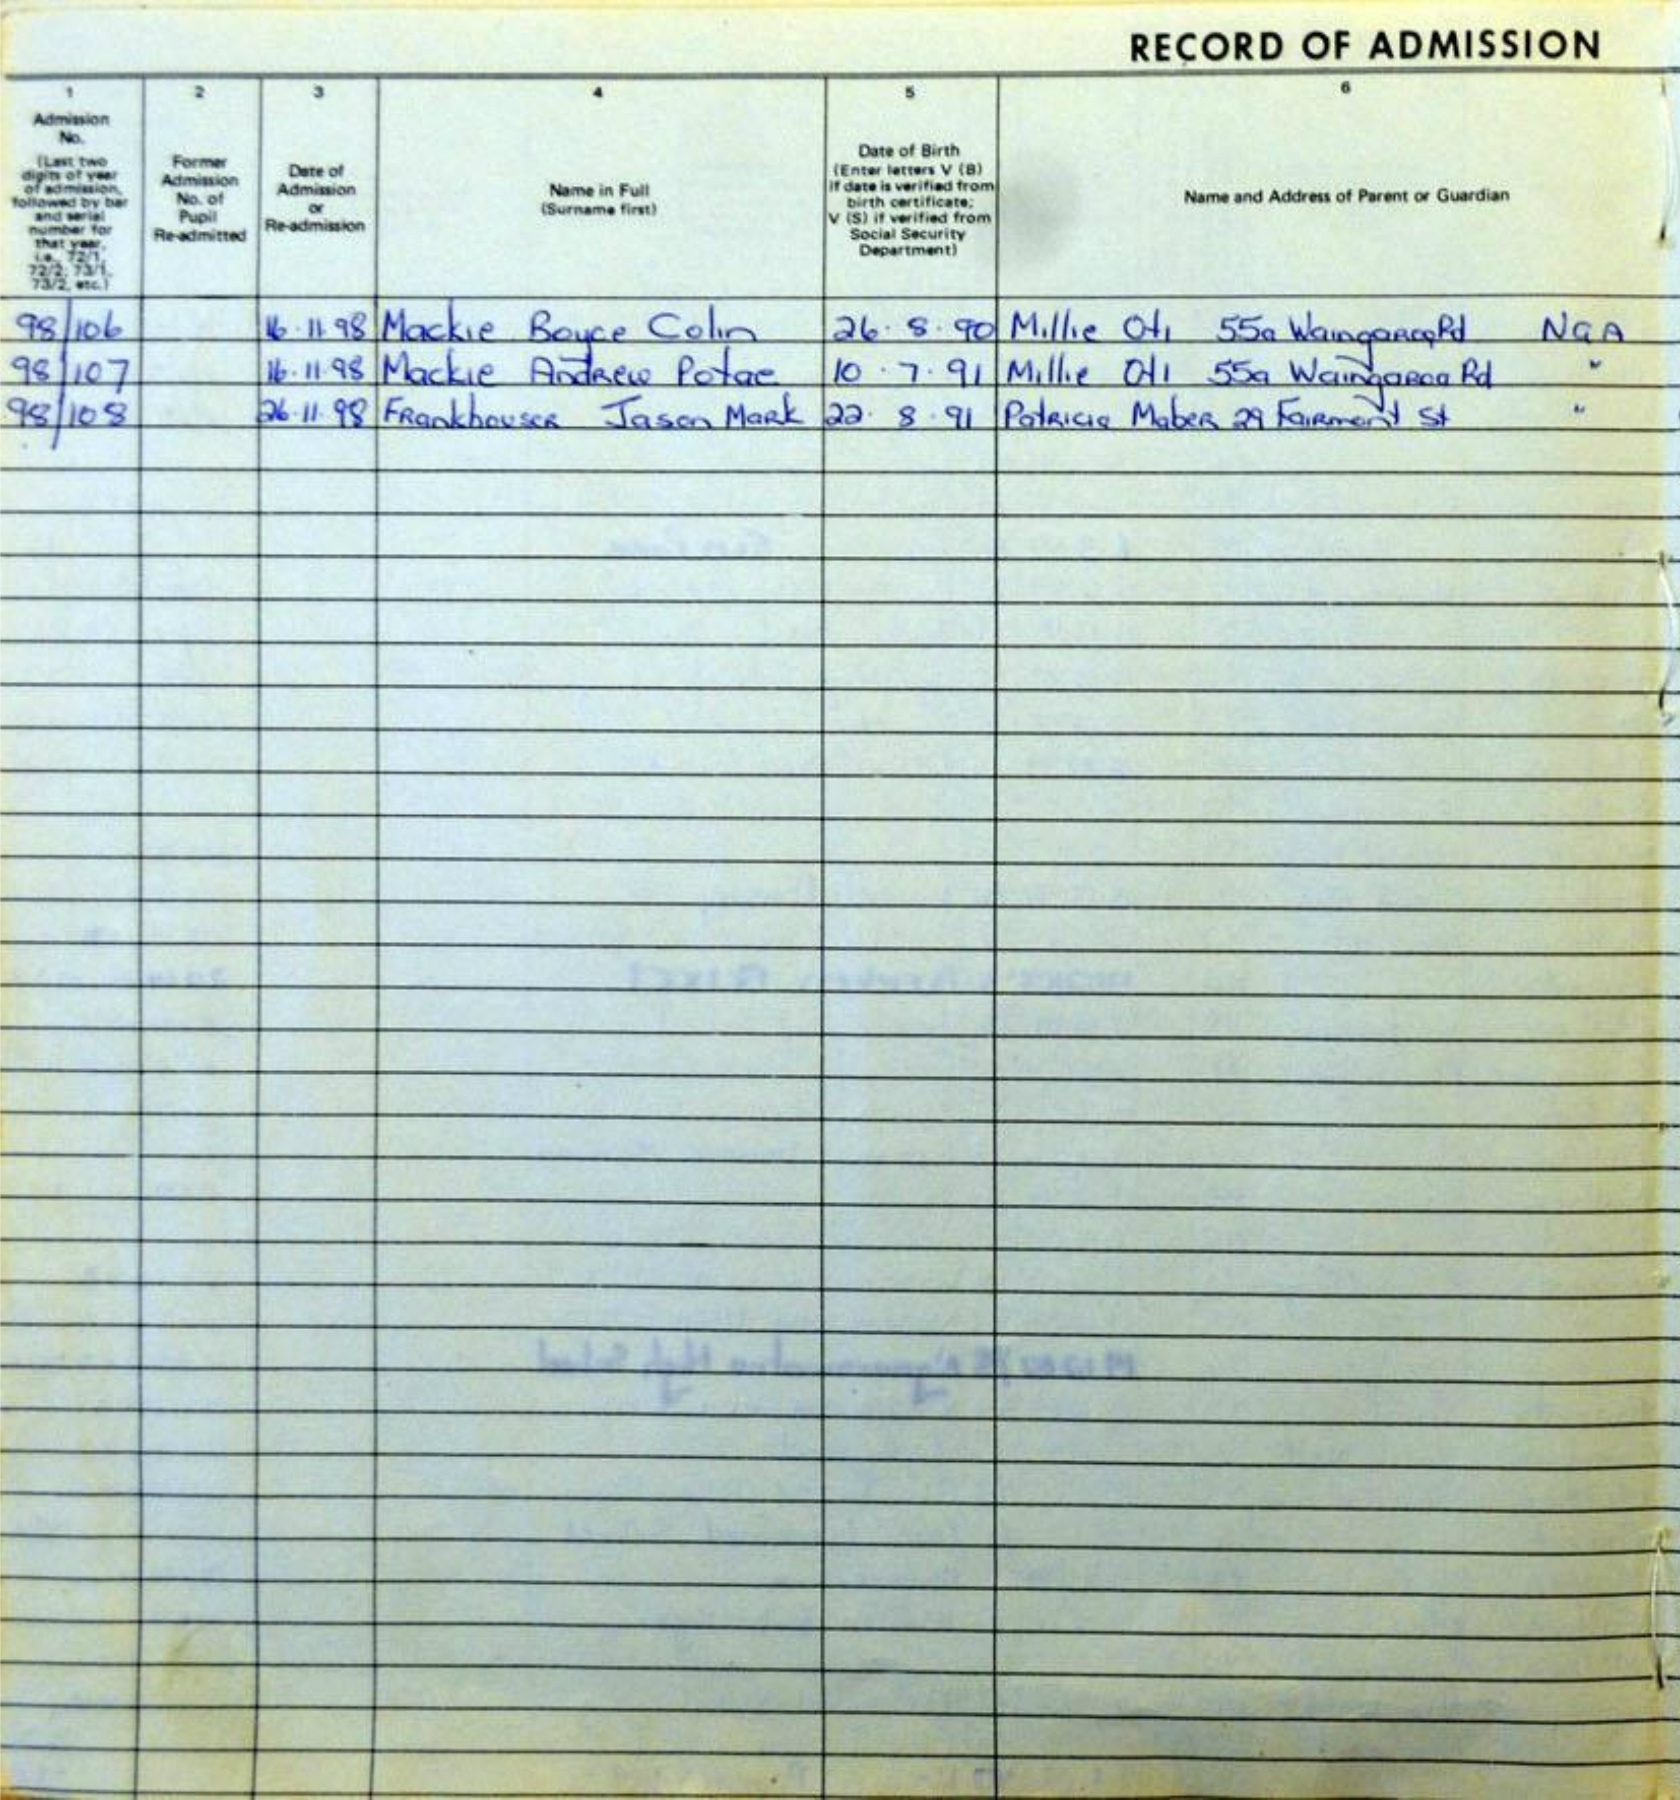 RECORD OF ADMISSION
1 2 3 4 5 6
Admission
No.
(Last two
digits of year
of admission,
followed by bar
and serial
number for
that year,
i.e., 72/1,
72/2, 73/1,
73/2, etc.)
Former
Admission
No. of
Pupil
Re-admitted
Date of
Admission
or
Re-admission
Name in Full
(Surname first)
Date of Birth
(Enter letters V (B)
if date is verified from
birth certificate;
V (S) if verified from
Social Security
Department)
Name and Address of Parent or Guardian
98/106 16.11.98 Mackie Boyce Colin 26.8.90 Millie Oti 55a Waingaroa Rd NGA
98/107 16.11.98 Mackie Andrew Potae 10.7.91 Millie Oti 55a Waingaroa Rd "
98/108 26.11.98 Frankhouser Jason Mark 22.8.91 Patricia Maber 29 Fairmont St "